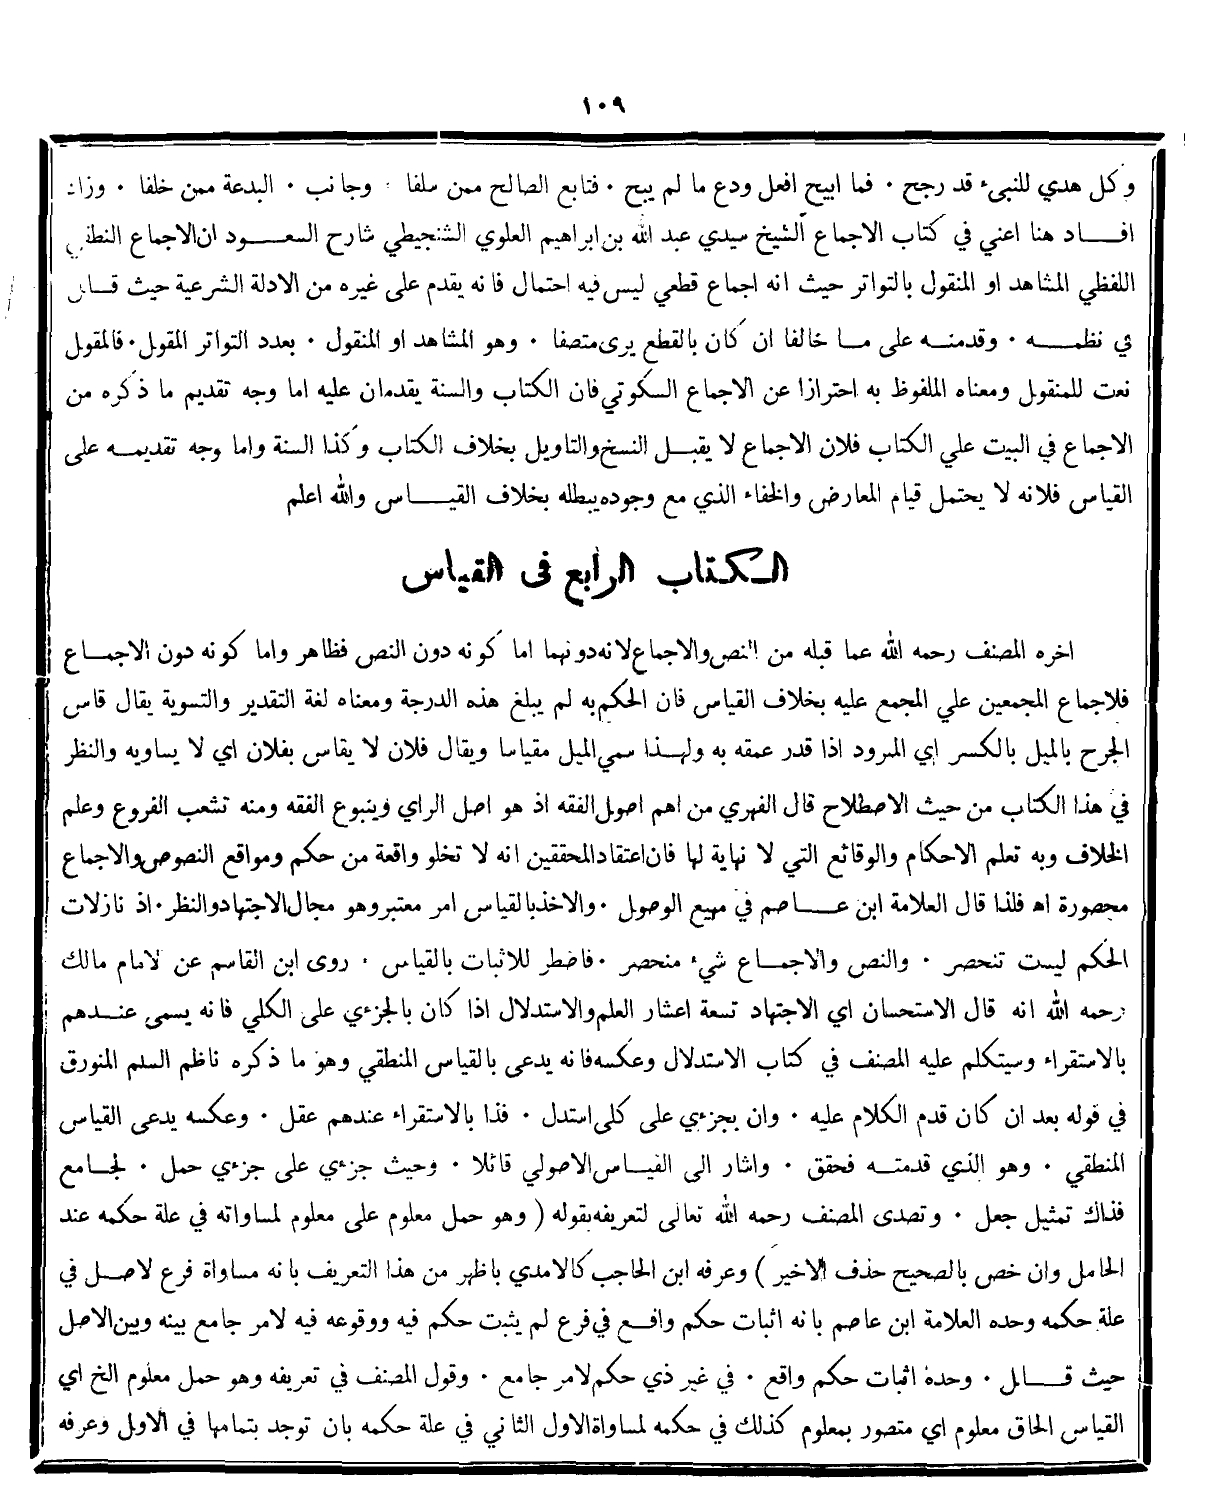 ١٠٩
وكل هدي للنبيء قد رجح ٠ فما ابيح افعل ودع ما لم يبح ٠ فتابع الصالح ممن سلفا ٠ وجانب ٠ البدعة ممن خلفا ٠ وزاد
افـــاد هنا اعني في كتاب الاجماع الشيخ سيدي عبد الله بن ابراهيم العلوي الشنجيطي شارح السعـــود ان الاجماع النطقي
اللفظي المشاهد او المنقول بالتواتر حيث انه اجماع قطعي ليس فيه احتمال فانه يقدم على غيره من الادلة الشرعية حيث قـــال
في نظمـــه ٠ وقدمنـــه على مـــا خالفا ان كان بالقطع يرى متصفا ٠ وهو المشاهد او المنقول ٠ بعدد التواتر المقول ٠ فالمقول
نعت للمنقول ومعناه الملفوظ به احترازا عن الاجماع السكوتي فان الكتاب والسنة يقدمان عليه اما وجه تقديم ما ذكره من
الاجماع في البيت علي الكتاب فلان الاجماع لا يقبـــل النسخ والتاويل بخلاف الكتاب وكذا السنة واما وجه تقديمـــه على
القياس فلانه لا يحتمل قيام المعارض والخفاء الذي مع وجوده يبطله بخلاف القيـــاس والله اعلم
الـكـتاب الرابع في القياس
اخره المصنف رحمه الله عما قبله من النص والاجماع لانه دونهما اما كونه دون النص فظاهر واما كونه دون الاجمـــاع
فلاجماع المجمعين علي المجمع عليه بخلاف القياس فان الحكم به لم يبلغ هذه الدرجة ومعناه لغة التقدير والتسوية يقال قاس
الجرح بالميل بالكسر اي المرود اذا قدر عمقه به ولهـــذا سمي الميل مقياسا ويقال فلان لا يقاس بفلان اي لا يساويه والنظر
في هذا الكتاب من حيث الاصطلاح قال الفهري من اهم اصول الفقه اذ هو اصل الراي وينبوع الفقه ومنه تشعب الفروع وعلم
الخلاف وبه تعلم الاحكام والوقائع التي لا نهاية لها فان اعتقاد المحققين انه لا تخلو واقعة من حكم ومواقع النصوص والاجماع
محصورة اه فلذا قال العلامة ابن عـــاصم في مهيع الوصول ٠ والاخذ بالقياس امر معتبر وهو مجال الاجتهاد والنظر ٠ اذ نازلات
الحكم ليست تنحصر ٠ والنص والاجمـــاع شيء منحصر ٠ فاضطر للاثبات بالقياس ٠ روى ابن القاسم عن لامام مالك
رحمه الله انه قال الاستحسان اي الاجتهاد تسعة اعشار العلم والاستدلال اذا كان بالجزءي على الكلي فانه يسمى عنـــدهم
بالاستقراء وسيتكلم عليه المصنف في كتاب الاستدلال وعكسه فانه يدعى بالقياس المنطقي وهو ما ذكره ناظم السلم المنورق
في قوله بعد ان كان قدم الكلام عليه ٠ وان بجزءي على كلى استدل ٠ فذا بالاستقراء عندهم عقل ٠ وعكسه يدعى القياس
المنطقي ٠ وهو الذي قدمتـــه فحقق ٠ واشار الى القيـــاس الاصولي قائلا ٠ وحيث جزءي على جزءي حمل ٠ لجـــامع
فذاك تمثيل جعل ٠ وتصدى المصنف رحمه الله تعالى لتعريفه بقوله ( وهو حمل معلوم على معلوم لمساواته في علة حكمه عند
الحامل وان خص بالصحيح حذف الاخير ) وعرفه ابن الحاجب كالامدي باظهر من هذا التعريف بانه مساواة فرع لاصـــل في
علة حكمه وحده العلامة ابن عاصم بانه اثبات حكم واقـــع في فرع لم يثبت حكم فيه ووقوعه فيه لامر جامع بينه وبين الاصل
حيث قـــال ٠ وحده اثبات حكم واقع ٠ في غير ذي حكم لامر جامع ٠ وقول المصنف في تعريفه وهو حمل معلوم الخ اي
القياس الحاق معلوم اي متصور بمعلوم كذلك في حكمه لمساواة الاول الثاني في علة حكمه بان توجد بتمامها في الاول وعرفه